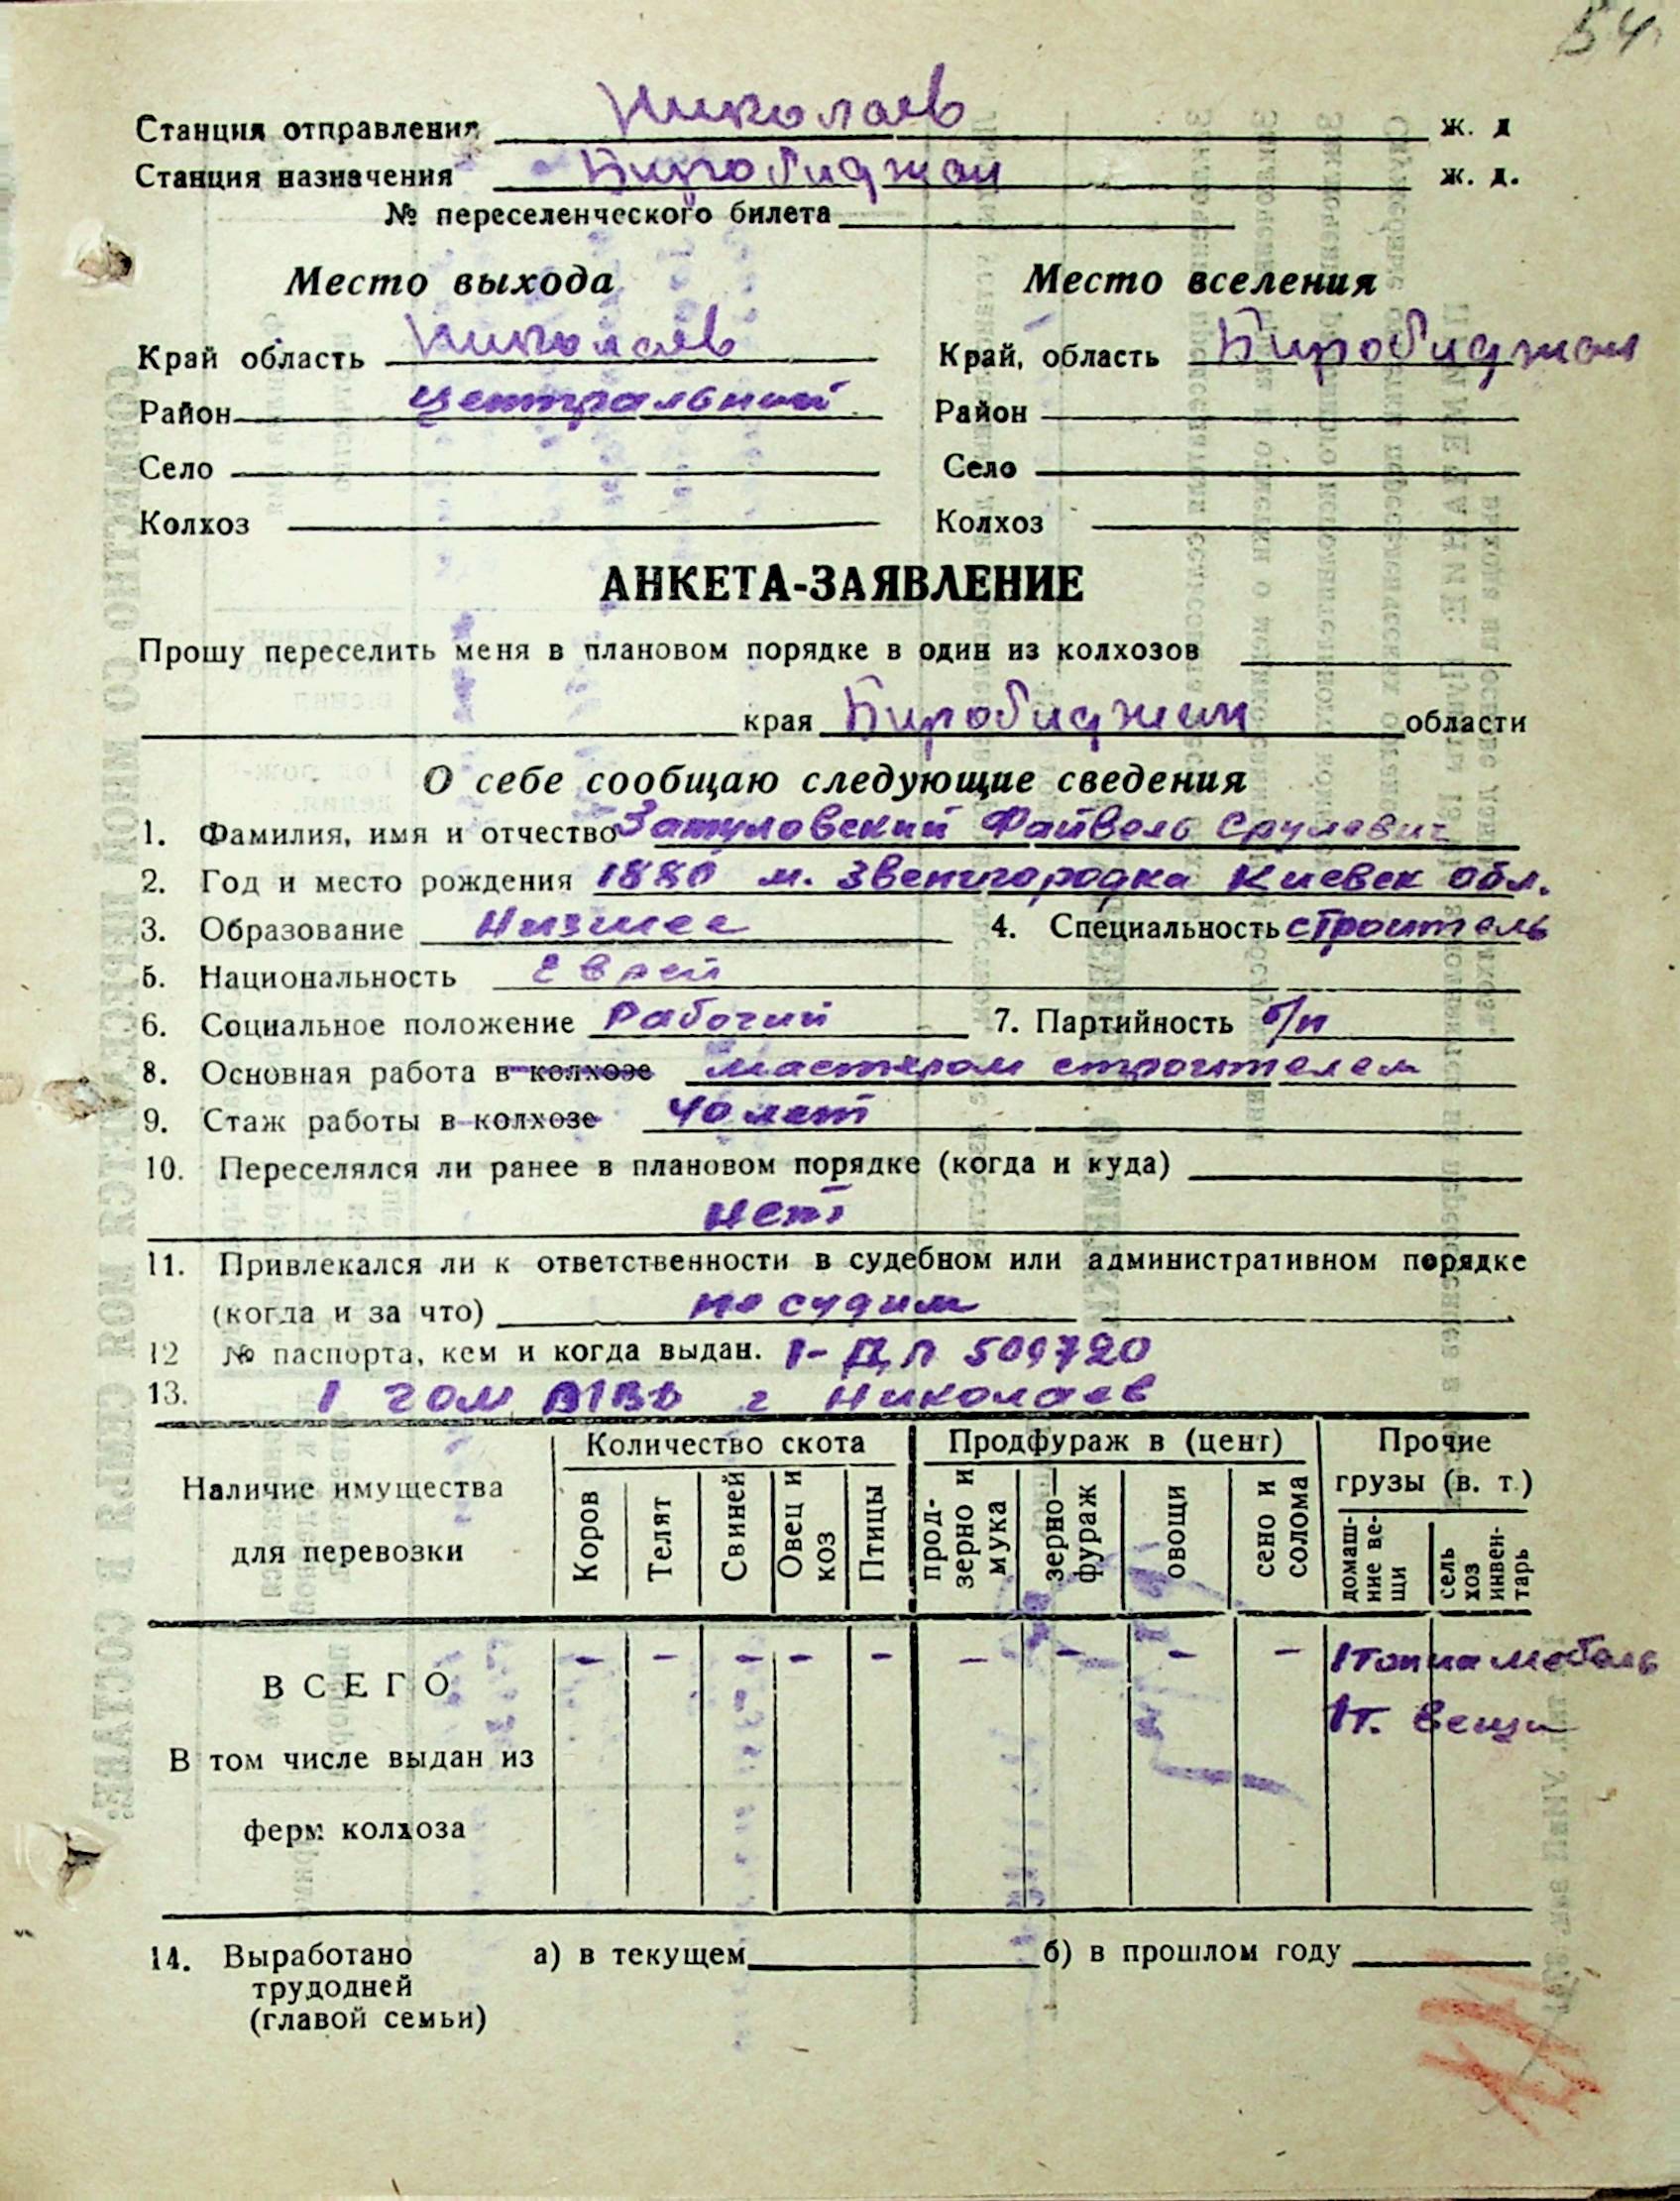 54
Станция отправления Николаев ж. д
Станция назначения Биробиджан ж. д.
№ переселенческого билета
Место выхода Место вселения
Край область Николаев Край, область Биробиджан
Район Центральний Район
Село Село
Колхоз Колхоз
АНКЕТА-ЗАЯВЛЕНИЕ
Прошу переселить меня в плановом порядке в один из колхозов
края Биробиджан области
О себе сообщаю следующие сведения
1. Фамилия, имя и отчество Затуловский Файвель Срулевич
2. Год и место рождения 1880 м. Звенигородка Киевск обл.
3. Образование Низшее 4. Специальность строитель
5. Национальность Еврей
6. Социальное положение Рабочий 7. Партийность б/п
8. Основная работа в колхозе мастером строителем
9. Стаж работы в колхозе 40 лет
10. Переселялся ли ранее в плановом порядке (когда и куда)
нет
11. Привлекался ли к ответственности в судебном или административном порядке
(когда и за что) не судим
12 № паспорта, кем и когда выдан. 1-ДЛ 509720
13. 1 гом г Николаев
Наличие имущества для перевозки Количество скота Продфураж в (цент) Прочие грузы (в. т.)
Коров Телят Свиней Овец и коз Птицы прод-зерно и мука зерно-фураж овощи сено и солома домаш-ние ве-щи сель хоз инвен-тарь
ВСЕГО - - - - - - - - - 1 тонна мебель
1т. вещи
В том числе выдан из
ферм колхоза
14. Выработано а) в текущем б) в прошлом году
трудодней
(главой семьи)